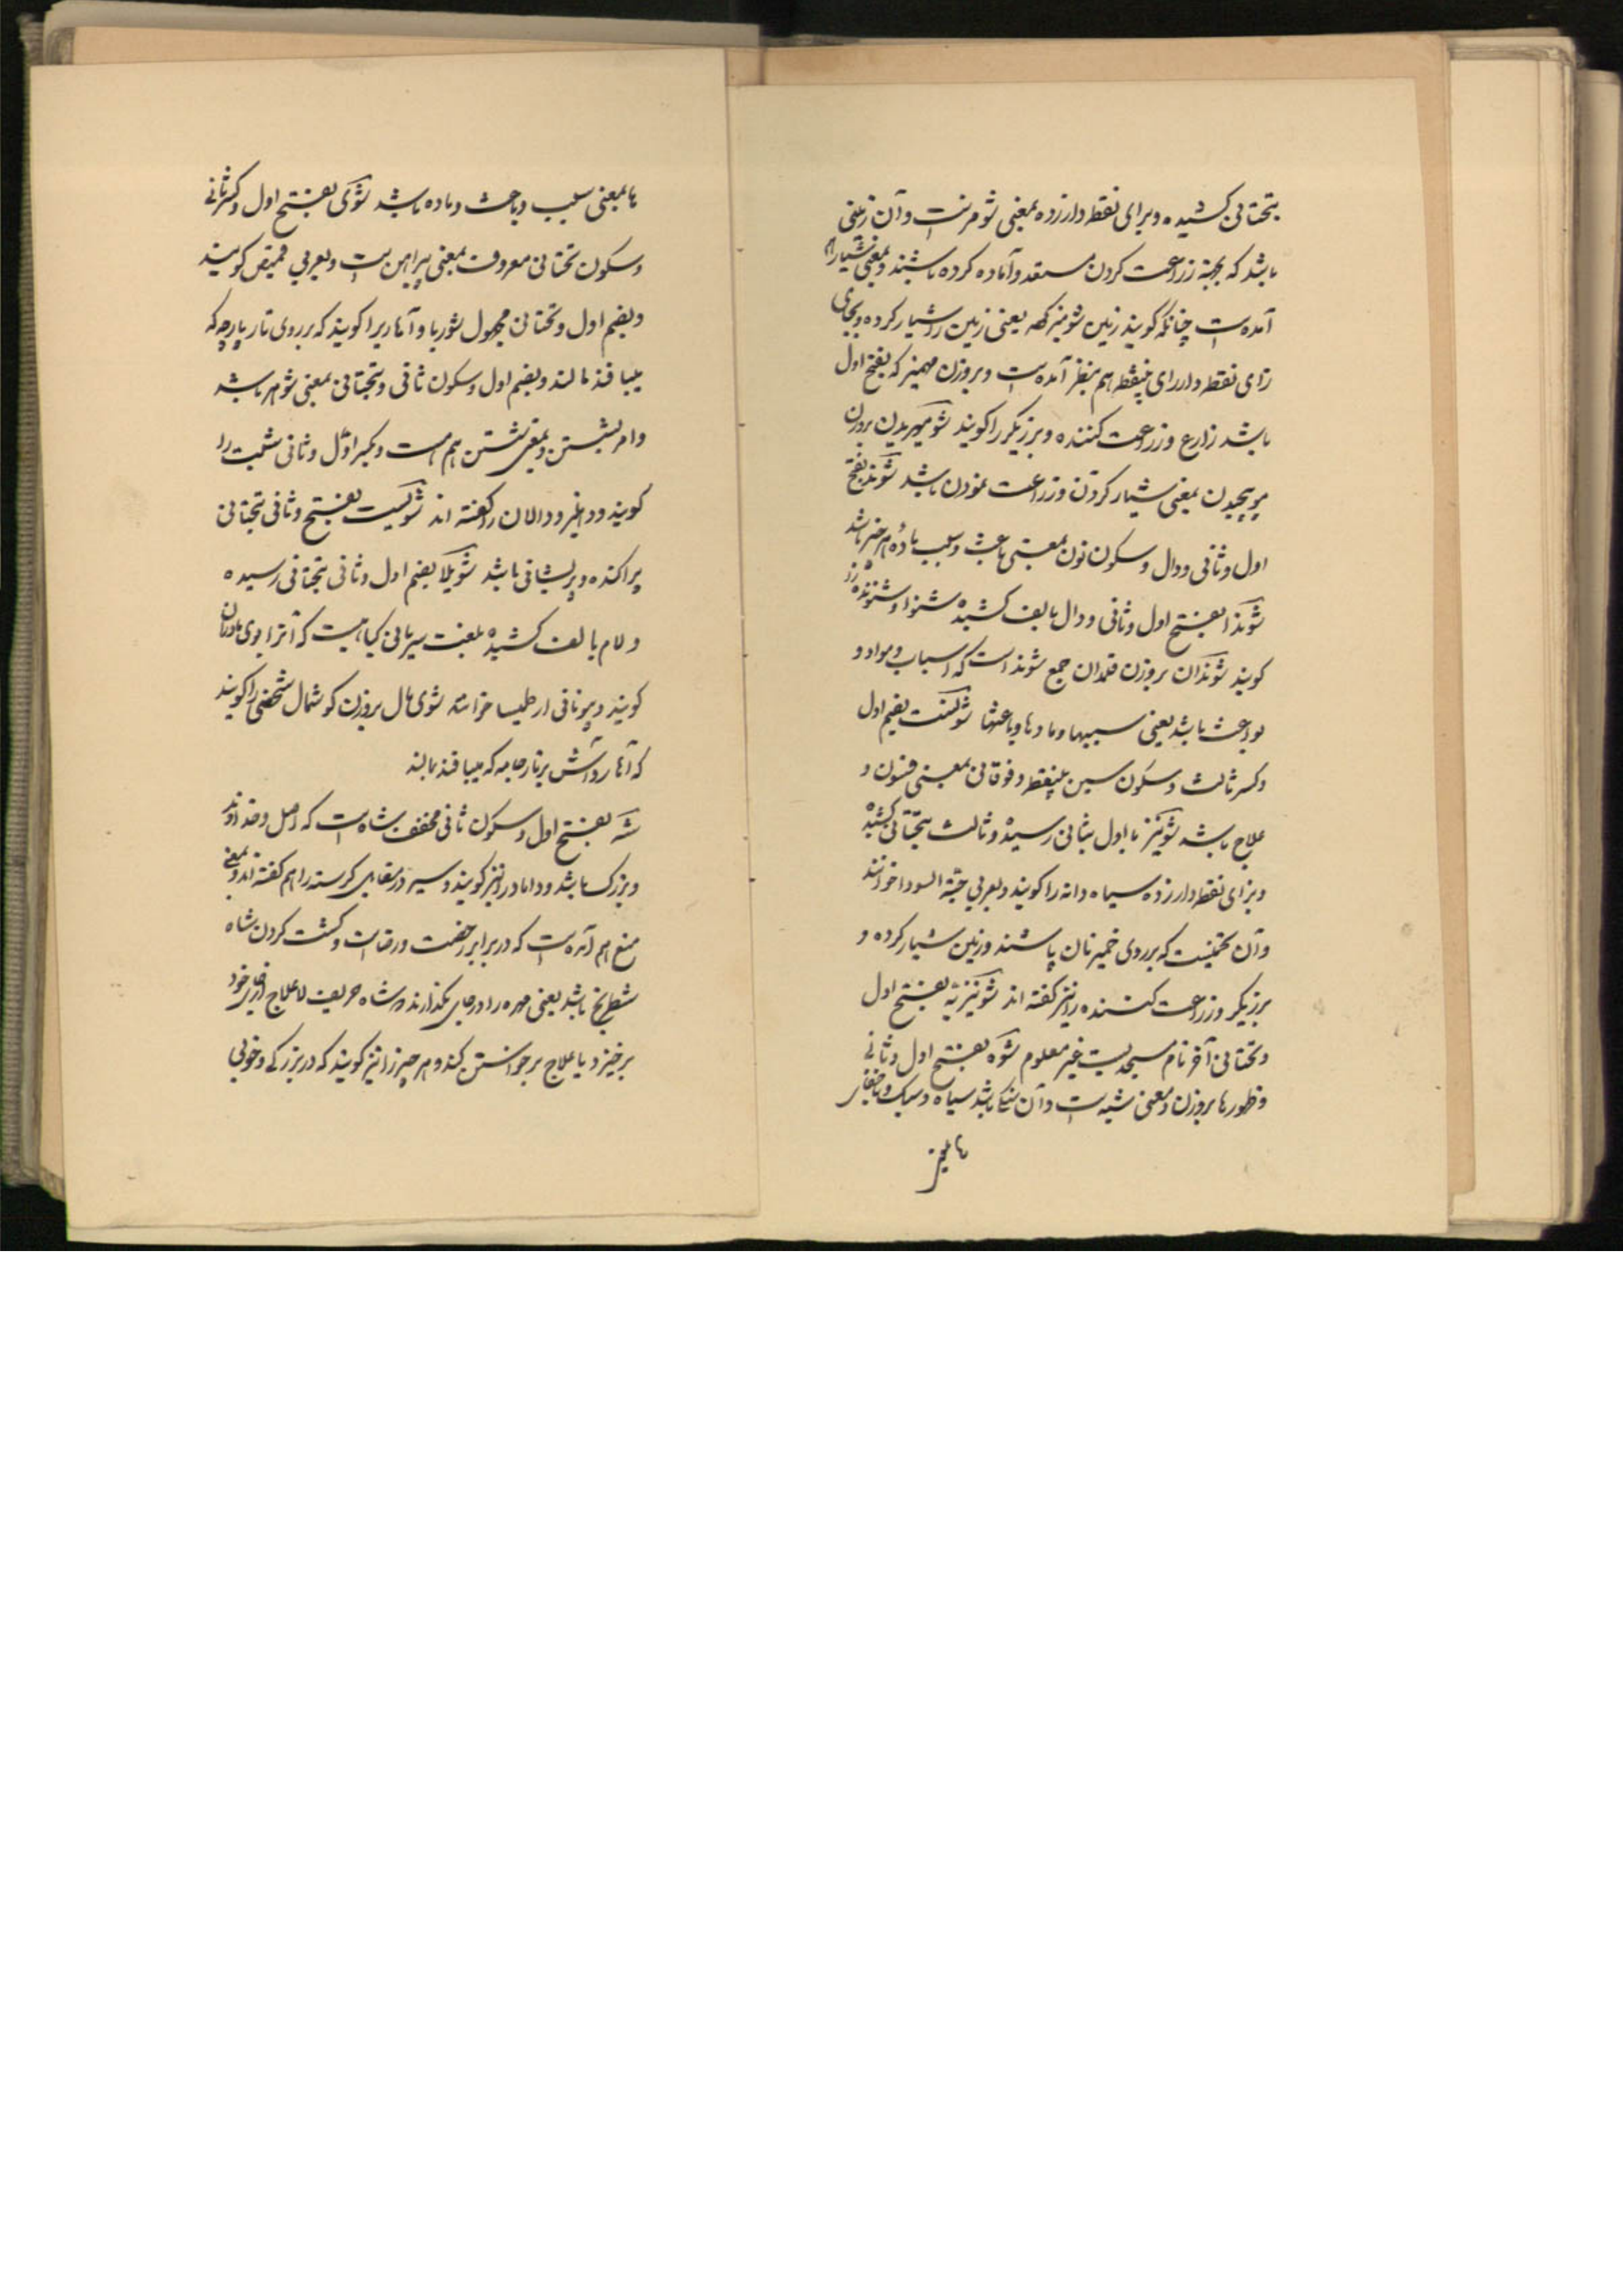 بتحتانی کشیده و برای نقطه دار زده بمعنی شومز است و آن زمینی
باشد که بجهة زراعت کردن مستعد و آماده کرده باشند و بمعنی شیار هم
آمده است چنانکه گویند زمین شومیز کهه یعنی زمین را شیار کرده و بجای
زای نقطه دار رای بینقطه هم بنظر آمده است و بروزن مهمیز که بفتح اول
باشد زارع و زراعت کننده و برزیگر را گویند شومیزیدن بروزن
مو پیچیدن بمعنی شیار کردن و زراعت نمودن باشد شوند بفتح
اول و ثانی و دال و سکون نون بمعنی باعث و سبب و ماده هر چیز باشد
شوندا بفتح اول و ثانی و دال بالف کشیده شنوا و شنونده را
گویند شوندان بروزن قلمدان جمع شوند است که اسباب و مواد و
بواعث باشد یعنی سببها و مادها و باعثها شونست بضم اول
و کسر ثالث و سکون سین بینقطه و فوقانی بمعنی فسون و
علاج باشد شونیز با اول بثانی رسیده و ثالث بتحتانی کشیده
و بزای نقطه دار زده سیاه دانه را گویند و بعربی حبة السودا خوانند
و آن تخمیست که بر روی خمیر نان پاشند و زمین شیار کرده و
برزیگر و زراعت کننده را نیز گفته اند شونیزیه بفتح اول
و تحتانی آخر نام مسجدیست غیر معلوم شوه بفتح اول و ثانی
و ظهور ها بروزن و معنی شبه است و آن سنگی باشد سیاه و سبک و باخفای
ها نیز
ها بمعنی سبب و باعث و ماده باشد شوی بفتح اول و کسر ثانی
و سکون تحتانی معروف بمعنی پیراهن است و بعربی قمیص گویند
و بضم اول و تحتانی مجهول شوربا و آهاریرا گویند که بر روی تار پارچه که
میبافند مالند و بضم اول و سکون ثانی و تحتانی بمعنی شوهر باشد
و امر بشستن و بمعنی شستن هم هست و بکسر اول و ثانی شبت را
گویند و دهلیز و دالان را گفته اند شویست بفتح و ثانی بتحتانی
پراکنده و پریشانی باشد شویلا بضم اول و ثانی بتحتانی رسیده
و لام بالف کشیده بلغت سریانی گیاهیست که آنرا بوی مادران
گویند و بیونانی ارطمیسا خوانند شوی مال بروزن گوشمال شخصی را گویند
که آهار و آش بر تار جامه که میبافند بمالند
شه بفتح اول و سکون ثانی مخفف شاه است که اصل و خداوند
و بزرگ باشد و داماد را نیز گویند و سیر در مقابل گرسنه را هم گفته اند و بمعنی
منع هم آمده است که در برابر رخصت و رضا است و کشت کردن شاه
شطرنج باشد یعنی مهره را در جای بگذارند که شاه حریف لاعلاج از جای خود
برخیزد یا علاج برخواستن کند و هر چیز را نیز گویند که در بزرگی و خوبی